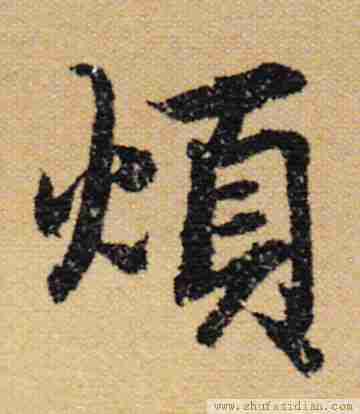 煩
www.shufazidian.com